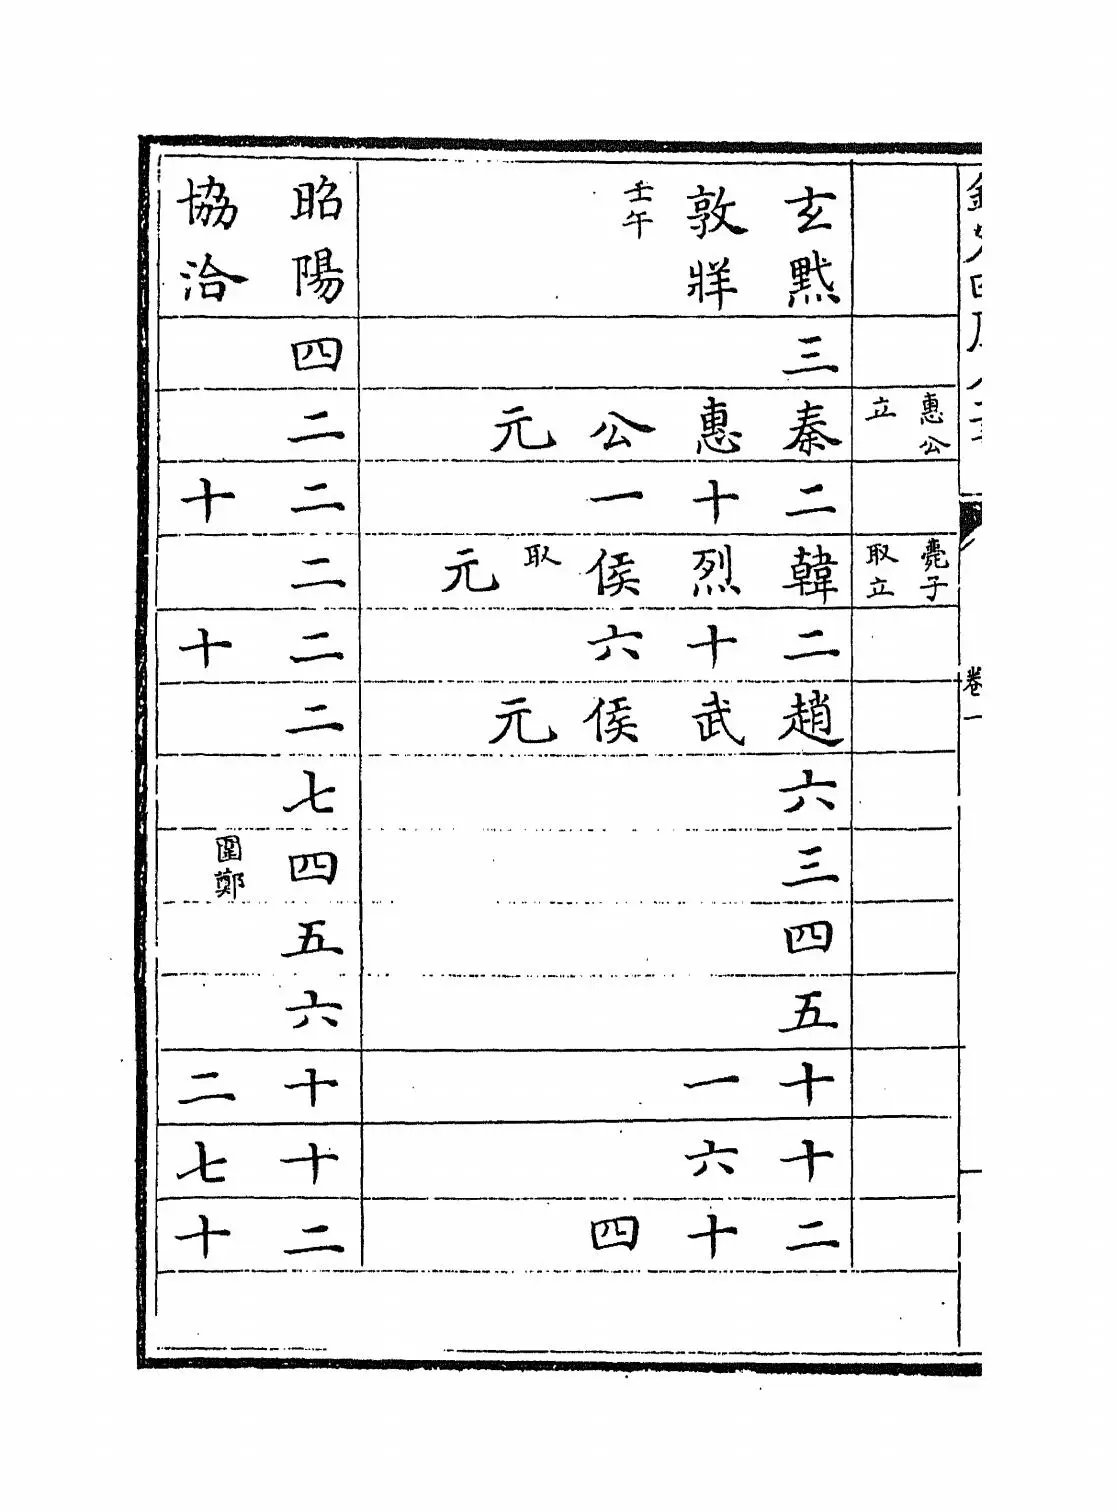 卷一
惠公立
薨子取立
玄黓敦牂 壬午
三
秦惠公元
二十一
韓烈侯取元
二十六
趙武侯元
六
三
四
五
十一
十六
二十四
昭陽協洽
四
二
二十
二
二十
二
七
四 圍鄭
五
六
十二
十七
二十